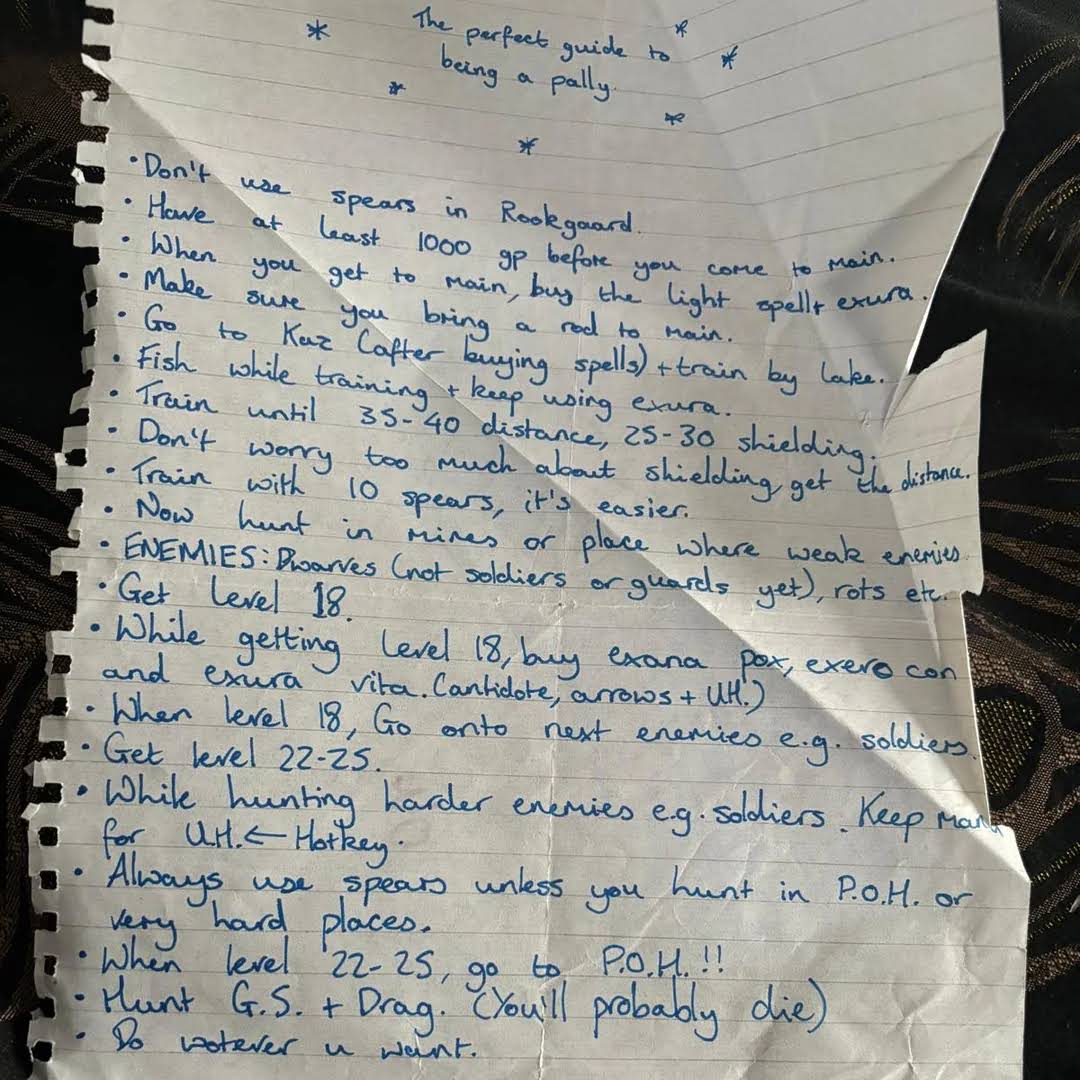 The perfect guide to
being a pally.
• Don't use spears in Rookgaard.
• Have at least 1000 gp before you come to main.
• When you get to main, buy the light spell + exura.
• Make sure you bring a rod to main.
• Go to Kaz (after buying spells) + train by lake.
• Fish while training + keep using exura.
• Train until 35-40 distance, 25-30 shielding.
• Don't worry too much about shielding, get the distance.
• Train with 10 spears, it's easier.
• Now hunt in mines or place where weak enemies.
• ENEMIES: Dwarves (not soldiers or guards yet), rots etc.
• Get level 18.
• While getting level 18, buy exana pox, exero con
and exura vita. (antidote, arrows + UH.)
• When level 18, Go onto next enemies e.g. soldiers.
• Get level 22-25.
• While hunting harder enemies e.g. soldiers. Keep mana
for U.H. ← Hotkey.
• Always use spears unless you hunt in P.O.H. or
very hard places.
• When level 22-25, go to P.O.H.!!
• Hunt G.S. + Drag. (You'll probably die)
• Do wotever u want.